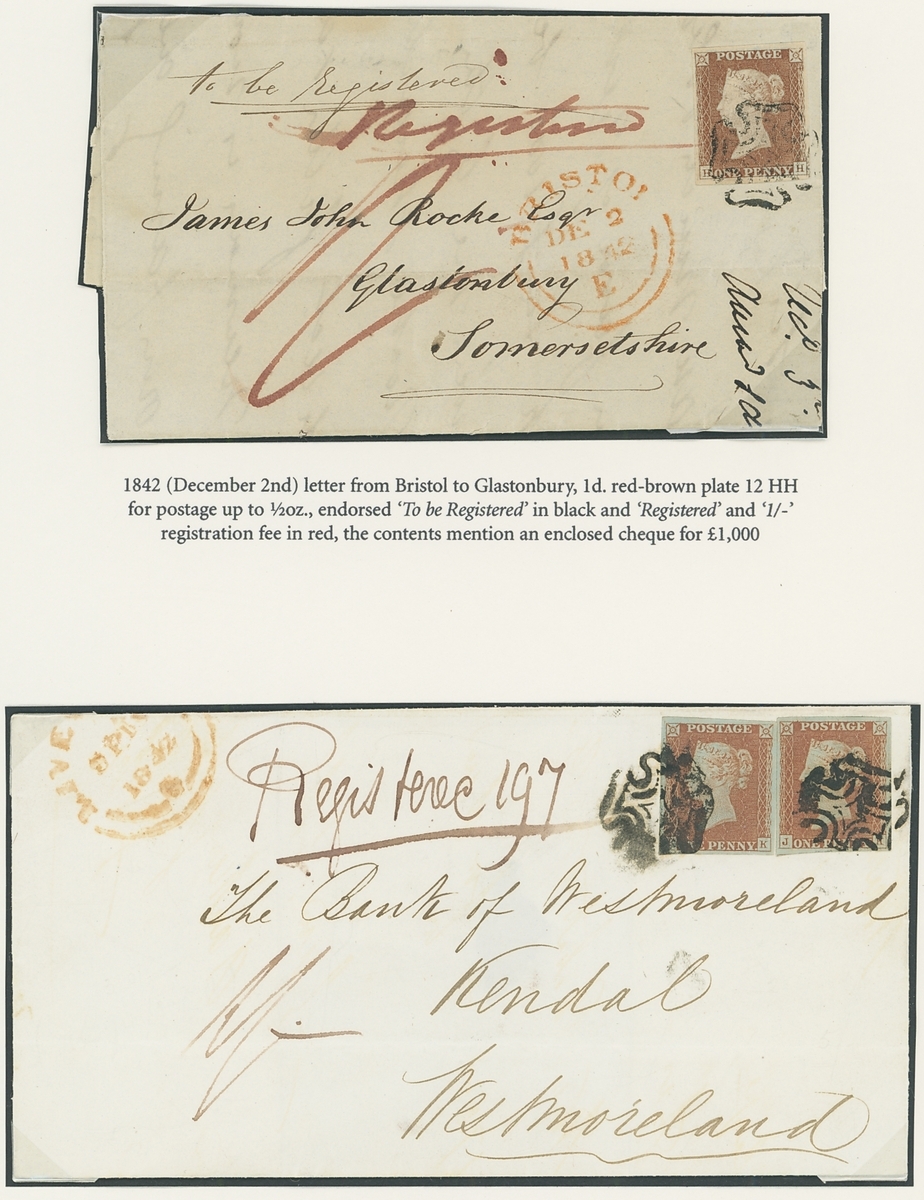 to be Registered
Registered
POSTAGE
H ONE PENNY H
James John Roche Esqr
BRISTOL
DE 2
1842
E
Glastonbury
Somersetshire
1842 (December 2nd) letter from Bristol to Glastonbury, 1d. red-brown plate 12 HH
for postage up to ½oz., endorsed ‘To be Registered’ in black and ‘Registered’ and ‘1/-’
registration fee in red, the contents mention an enclosed cheque for £1,000
LIVE
1842
Registered 197
POSTAGE
PENNY K
POSTAGE
J ONE
The Bank of Westmoreland
Kendal
1/-
Westmoreland